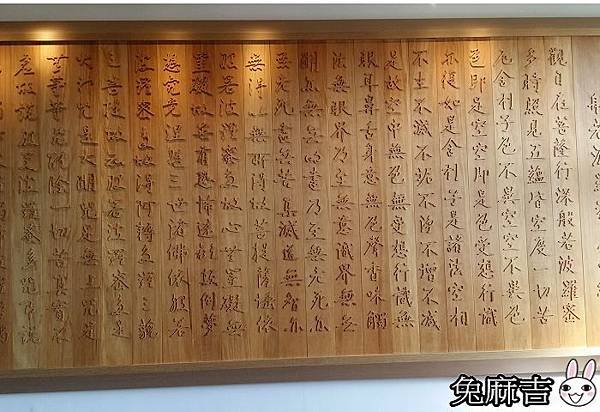 般若波羅
觀自在菩薩行深般若波羅蜜
多時照見五蘊皆空度一切苦
厄舍利子色不異空空不異色
色即是空空即是色受想行識
亦復如是舍利子是諸法空相
不生不滅不垢不淨不增不減
是故空中無色無受想行識無
眼耳鼻舌身意無色聲香味觸
法無眼界乃至無意識界無無
明亦無無明盡乃至無老死亦
無老死盡無苦集滅道無智亦
無得以無所得故菩提薩埵依
般若波羅蜜多故心無罣礙無
罣礙故無有恐怖遠離顛倒夢
想究竟涅槃三世諸佛依般若
波羅蜜多故得阿耨多羅三藐
三菩提故知般若波羅蜜多是
大神咒是大明咒是無上咒是
無等等咒能除一切苦真實不
虛故說般若波羅蜜多咒即說
兔麻吉